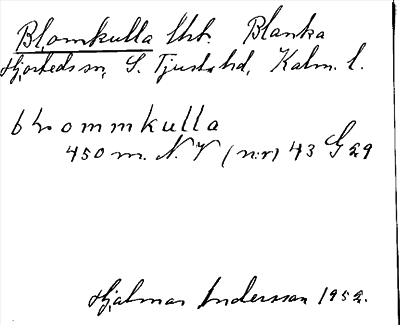 Blomkulla lht. Blanka
Hjorteds sn, S. Tjusts hd, Kalm. l.
blommkulla
450 m. N. V (nr) 43 G 29
Hjalmar Andersson 1952.